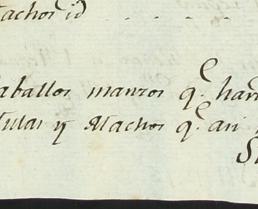 Machos id . . . . . .
aballos manzos q.e han
ulas y Machos q.e asi